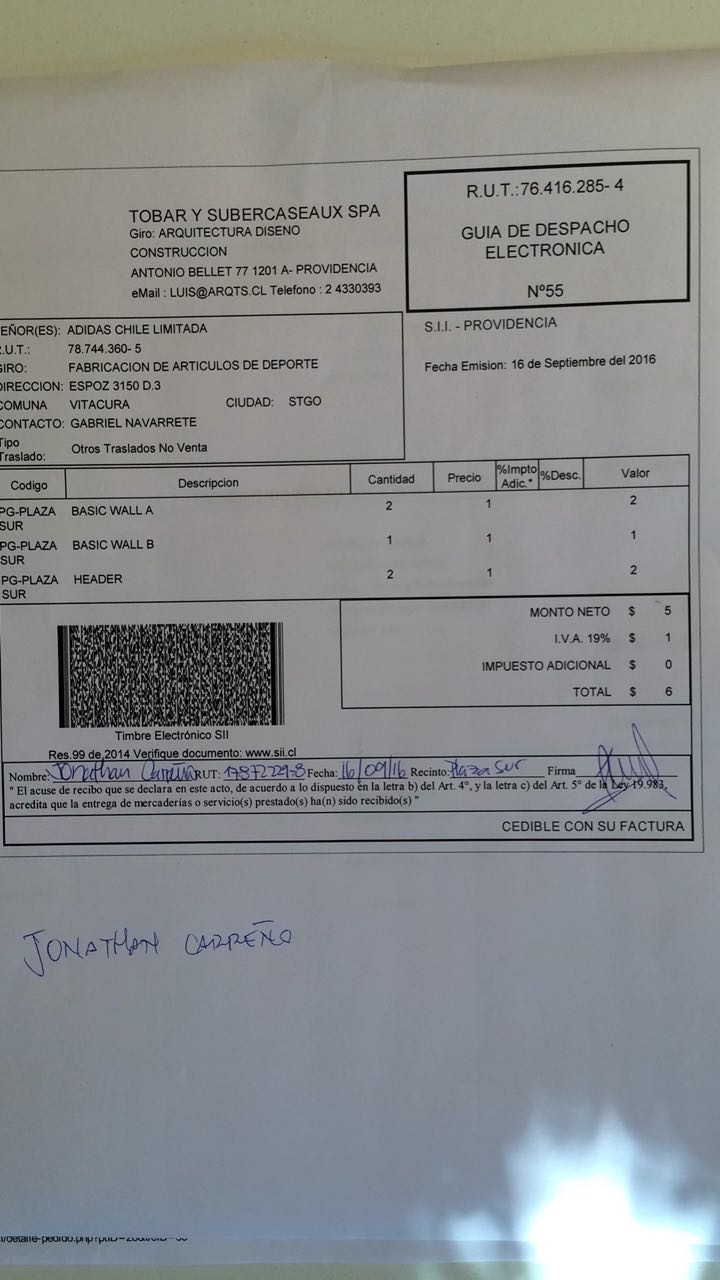 R.U.T.:76.416.285- 4
GUIA DE DESPACHO
ELECTRONICA
Nº55
TOBAR Y SUBERCASEAUX SPA
Giro: ARQUITECTURA DISENO
CONSTRUCCION
ANTONIO BELLET 77 1201 A- PROVIDENCIA
eMail : LUIS@ARQTS.CL Telefono : 2 4330393
S.I.I. - PROVIDENCIA
Fecha Emision: 16 de Septiembre del 2016
EÑOR(ES): ADIDAS CHILE LIMITADA
R.U.T.: 78.744.360- 5
GIRO: FABRICACION DE ARTICULOS DE DEPORTE
DIRECCION: ESPOZ 3150 D.3
COMUNA VITACURA CIUDAD: STGO
CONTACTO: GABRIEL NAVARRETE
Tipo
Traslado: Otros Traslados No Venta
Codigo Descripcion Cantidad Precio %Impto Adic.* %Desc. Valor
PG-PLAZA SUR BASIC WALL A 2 1 2
PG-PLAZA SUR BASIC WALL B 1 1 1
PG-PLAZA SUR HEADER 2 1 2
MONTO NETO $ 5
I.V.A. 19% $ 1
IMPUESTO ADICIONAL $ 0
TOTAL $ 6
Timbre Electrónico SII
Res.99 de 2014 Verifique documento: www.sii.cl
Nombre: Jonathan Carreño RUT: 17872229-8 Fecha: 16/09/16 Recinto: Plaza Sur Firma
" El acuse de recibo que se declara en este acto, de acuerdo a lo dispuesto en la letra b) del Art. 4°, y la letra c) del Art. 5° de la Ley 19.983,
acredita que la entrega de mercaderías o servicio(s) prestado(s) ha(n) sido recibido(s) "
CEDIBLE CON SU FACTURA
JONATHAN CARREÑO